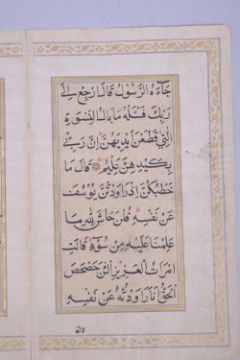 جَاءَهُ الرَّسُولُ قَالَ ارْجِعْ إِلَى
رَبِّكَ فَسْئَلْهُ مَا بَالُ النِّسْوَةِ
الّٰتِي قَطَّعْنَ أَيْدِيَهُنَّ إِنَّ رَبِّي
بِكَيْدِهِنَّ عَلِيمٌ قَالَ مَا
خَطْبُكُنَّ إِذْ رَاوَدْتُنَّ يُوسُفَ
عَنْ نَفْسِهِ قُلْنَ حَاشَ لِلّٰهِ مَا
عَلِمْنَا عَلَيْهِ مِنْ سُوءٍ قَالَتِ
امْرَأَتُ الْعَزِيزِ الْئٰنَ حَصْحَصَ
الْحَقُّ أَنَا رَاوَدْتُهُ عَنْ نَفْسِهِ